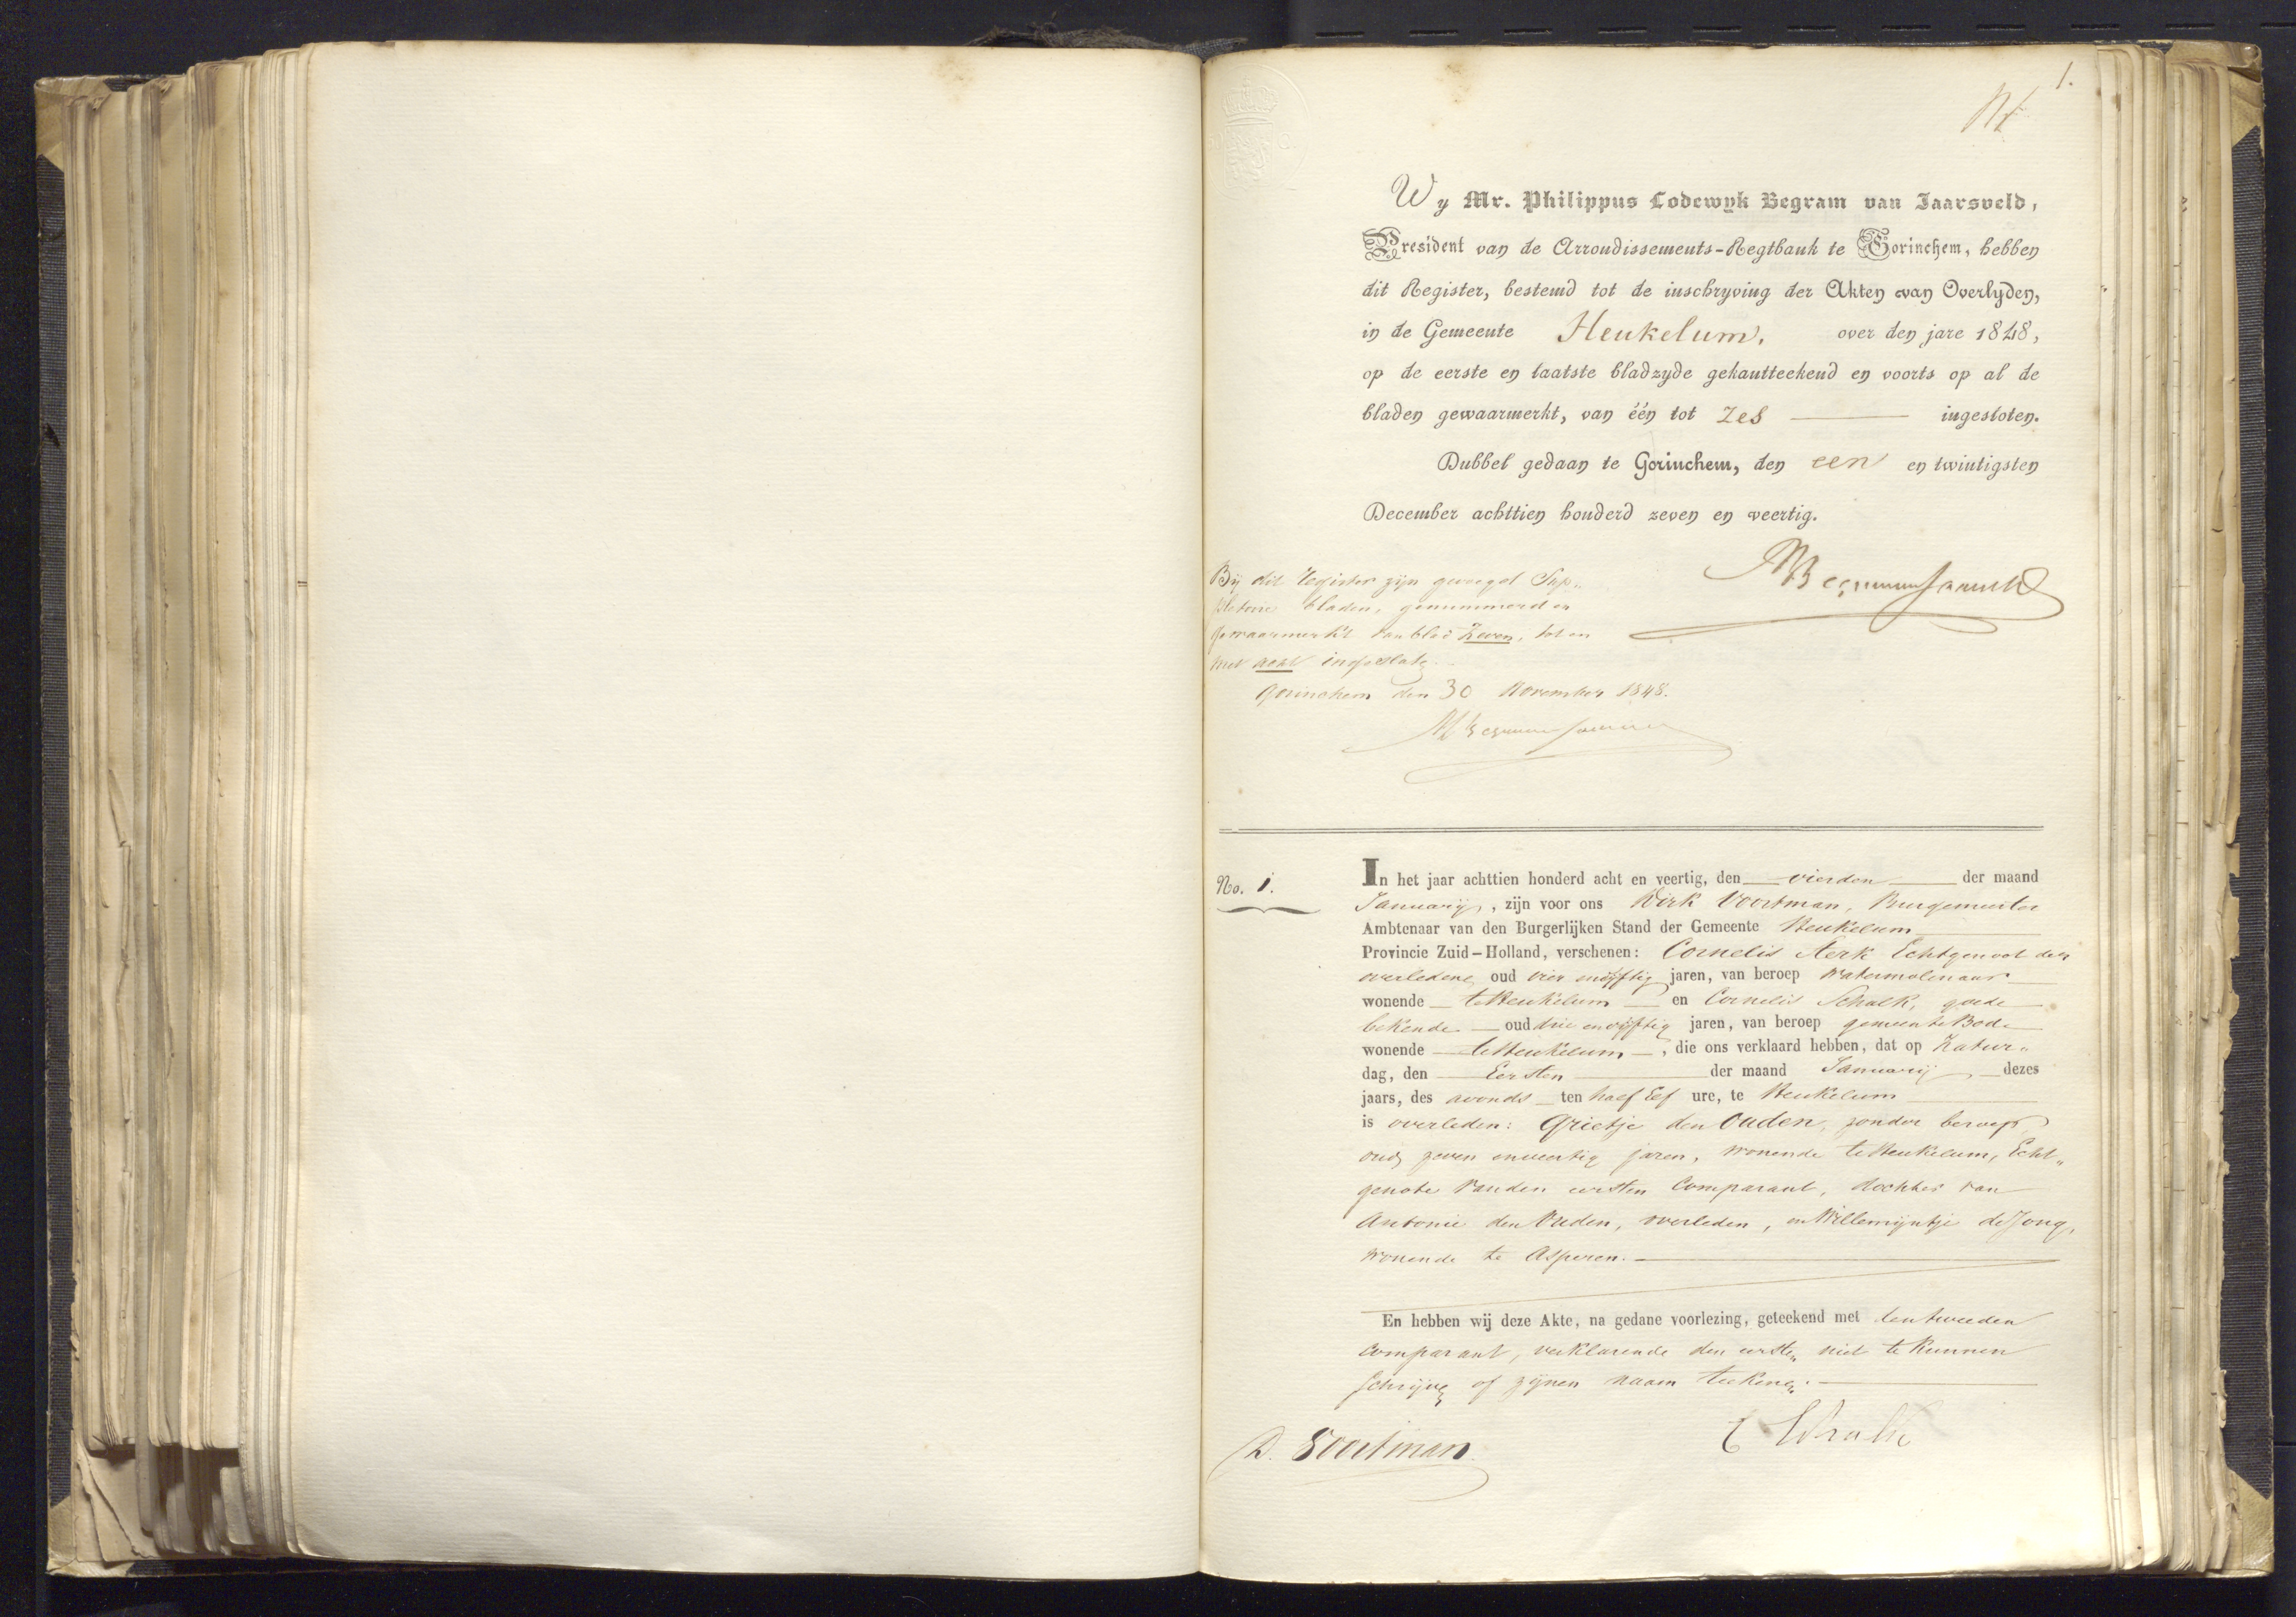 1.
Wy Mr. Philippus Lodewyk Begram van Jaarsveld,
President van de Arrondissements-Regtbank te Gorinchem, hebben
dit Register, bestemd tot de inschryving der Akten van Overlyden,
in de Gemeente Heukelum, over den jare 1848,
op de eerste en laatste bladzyde gekantteekend en voorts op al de
bladen gewaarmerkt, van één tot zes ingesloten.
Dubbel gedaan te Gorinchem, den een en twintigsten
December achttien honderd zeven en veertig.
Bij dit register zijn gevoegd Sup„
pletoire bladen, genummerd en
gewaarmerkt van blad zeven, tot en
met acht ingeslote.
Gorinchem den 30 November 1848.
No. 1.
In het jaar achttien honderd acht en veertig, den vierden der maand
Januarij, zijn voor ons Dirk Voortman, Burgemeester
Ambtenaar van den Burgerlijken Stand der Gemeente Heukelum
Provincie Zuid-Holland, verschenen: Cornelis Kerk Echtgenoot der
overledene oud vier en vijftig jaren, van beroep Watermolenaar
wonende te Heukelum en Cornelis Schalk, goede
bekende oud drie en vijftig jaren, van beroep gemeente Bode
wonende te Heukelum, die ons verklaard hebben, dat op Zatur„
dag, den Eersten der maand Januarij dezes
jaars, des avonds ten half Elf ure, te Heukelum
is overleden: Grietje den Ouden, zonder beroep,
oud zeven en veertig jaren, wonende te Heukelum, Echt„
genote van den eersten Comparant, dochter van
Antonie den Ouden, overleden, en Willemijntje de Jong,
wonende te Asperen.
En hebben wij deze Akte, na gedane voorlezing, geteekend met den tweeden
Comparant, verklarende den eersten niet te kunnen
schrijven of zijnen naam teekenen.
D. Voortman
C Schalk